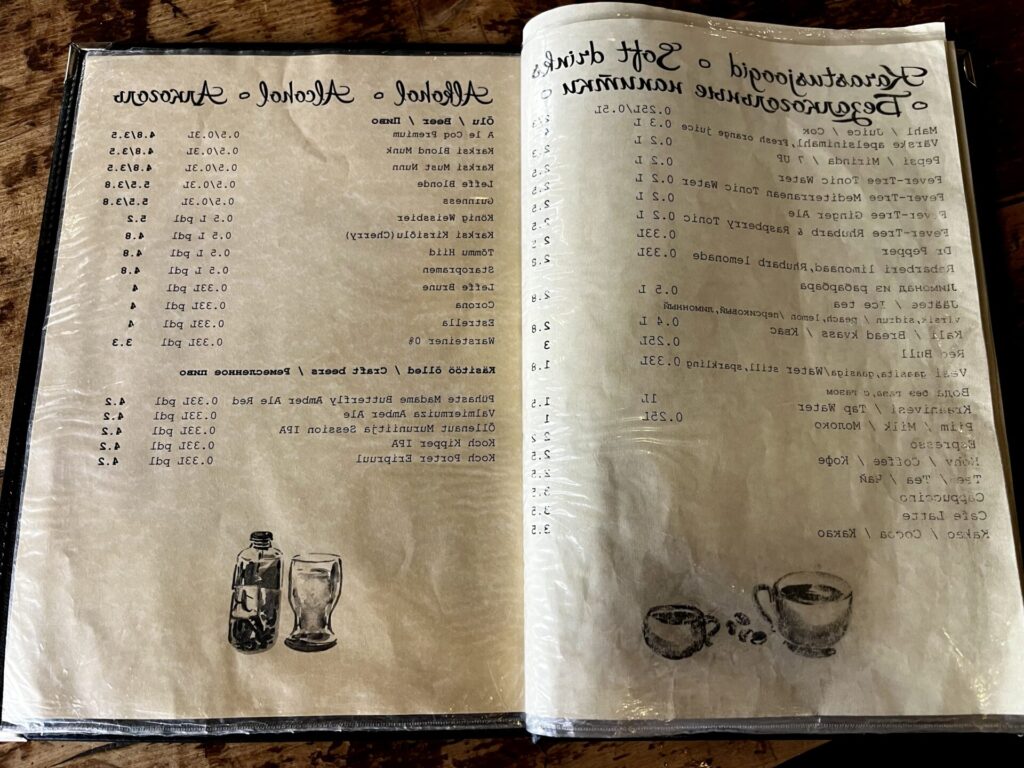 Karastusjoogid ∘ Soft drinks
∘ Безалкогольные напитки ∘
Mahl / Juice / Сок 0.25L/0.5L 2/3
Värske apelsinimahl, Fresh orange juice 0.3 L 4
Pepsi / Mirinda / 7 UP 0.2 L 2.3
Fever-Tree Tonic Water 0.2 L 2.5
Fever-Tree Mediterranean Tonic Water 0.2 L 2.5
Fever-Tree Ginger Ale 0.2 L 2.5
Fever-Tree Rhubarb & Raspberry Tonic 0.2 L 2.5
Dr Pepper 0.33L 2.5
Rabarberi limonaad, Rhubarb lemonade 0.33L 2.8
Лимонад из рабарбара
Jäätee / Ice tea 0.5 L 2.8
virsik, sidrun / peach, lemon /персиковый, лимонный
Kali / Bread kvass / Квас 0.4 L 2.8
Red Bull 0.25L 3
Vesi gaasita, gaasiga/Water still, sparkling 0.33L 1.8
Вода без газа, с газом
Kraanivesi / Tap Water 1L 1.5
Piim / Milk / Молоко 0.25L 1
Espresso 2
Kohv / Coffee / Кофе 2.5
Tee / Tea / Чай 2.5
Cappuccino 3.5
Cafe Latte 3.5
Kakao / Cocoa / Какао 3.5
Alkohol ∘ Alcohol ∘ Алкоголь
Õlu / Beer / Пиво
A le Coq Premium 0.5/0.3L 4.8/3.5
Karksi Blond Munk 0.5/0.3L 4.8/3.5
Karksi Must Nunn 0.5/0.3L 4.8/3.5
Leffe Blonde 0.5/0.3L 5.5/3.8
Guinness 0.5/0.3L 5.5/3.8
König Weissbier 0.5 L pdl 5.2
Karksi Kirsiõlu(Cherry) 0.5 L pdl 4.8
Tõmmu Hiid 0.5 L pdl 4.8
Staropramen 0.5 L pdl 4.8
Leffe Brune 0.33L pdl 4
Corona 0.33L pdl 4
Estrella 0.33L pdl 4
Warsteiner 0% 0.33L pdl 3.3
Käsitöö õlled / Craft beers / Ремесленное пиво
Pühaste Madame Butterfly Amber Ale Red 0.33L pdl 4.2
Valmiermuiza Amber Ale 0.33L pdl 4.2
Õllenaut Muruniitja Session IPA 0.33L pdl 4.2
Koch Kipper IPA 0.33L pdl 4.2
Koch Porter Eripruul 0.33L pdl 4.2